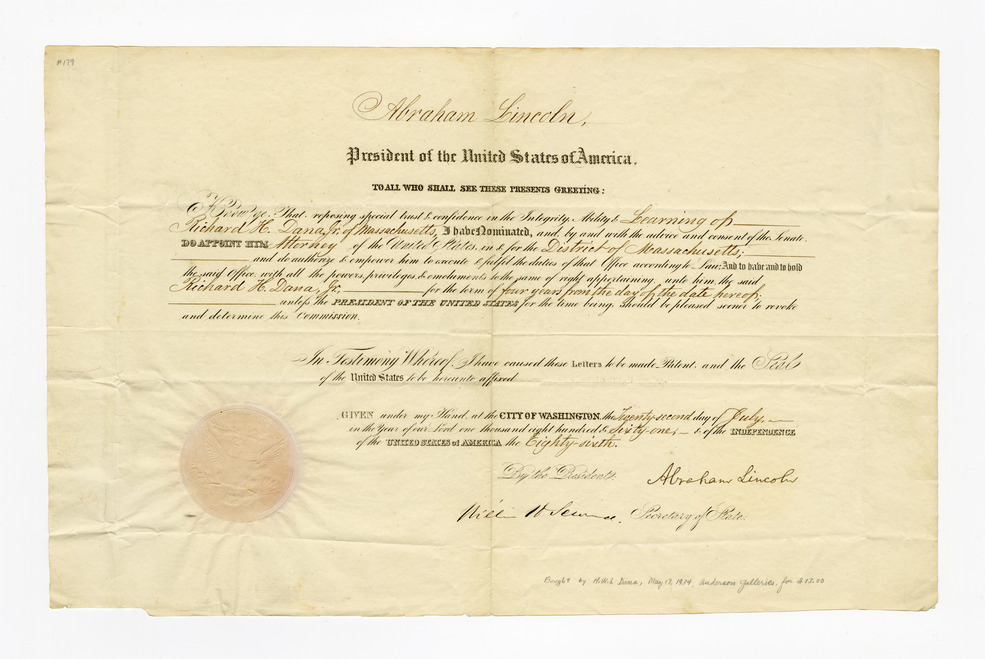 #179
Abraham Lincoln,
President of the United States of America.
TO ALL WHO SHALL SEE THESE PRESENTS GREETING:
Know ye. That reposing special trust & confidence in the Integrity, Ability & Learning of
Richard H. Dana, Jr. of Massachusetts, I have Nominated, and by and with the advice and consent of the Senate
DO APPOINT HIM Attorney of the United States, in & for the District of Massachusetts;
and do authorize & empower him to execute & fulfil the duties of that Office according to Law; And to have and to hold
the said Office, with all the powers, privileges & emoluments to the same of right appertaining unto him, the said
Richard H. Dana, Jr. for the term of four years from the day of the date hereof;
unless the PRESIDENT OF THE UNITED STATES for the time being, should be pleased sooner to revoke
and determine this Commission.
In Testimony Whereof, I have caused these Letters to be made Patent, and the Seal
of the United States to be hereunto affixed.
GIVEN under my Hand, at the CITY OF WASHINGTON, the Twenty second day of July,
in the Year of our Lord one thousand eight hundred & Sixty-one, & of the INDEPENDENCE
of the UNITED STATES of AMERICA the Eighty-sixth.
By the President.
Abraham Lincoln
William H Seward, Secretary of State.
Bought by H.W.L. Dana, May 17, 1934, Anderson Galleries, for $17.00